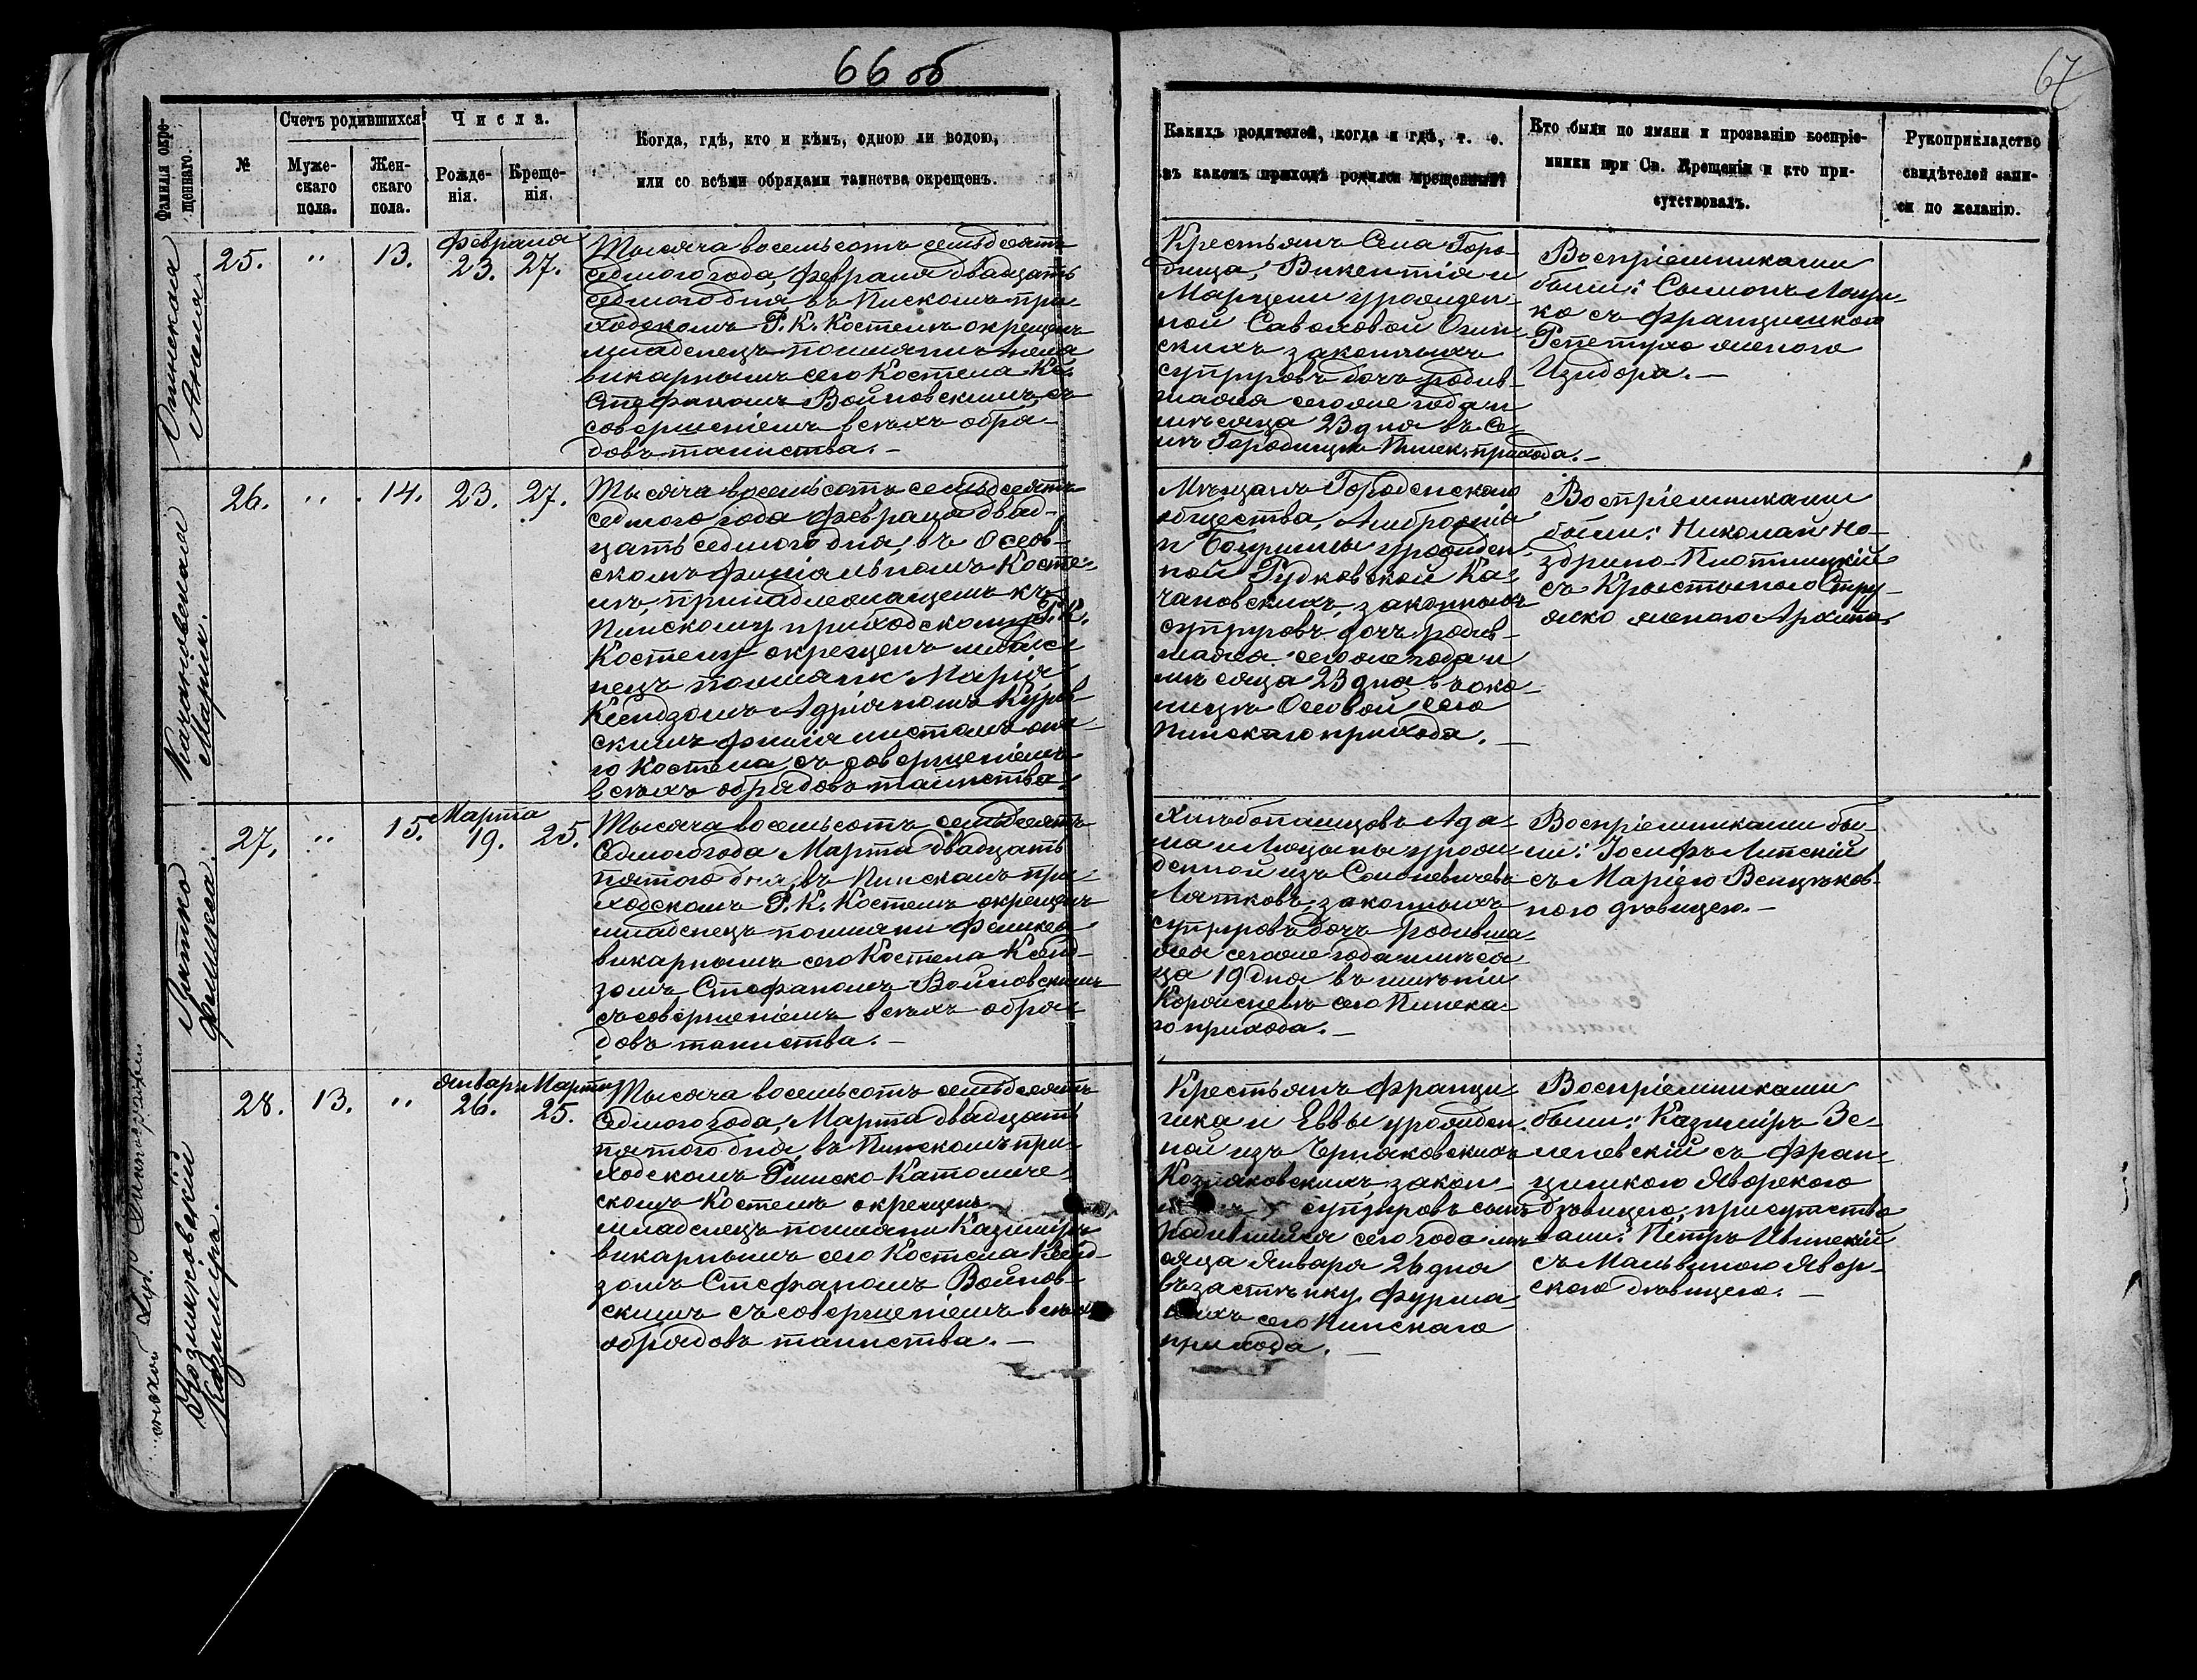 66 об
67
Фамилія окре-
щеннаго.
№
Счетъ родившихся
Муже-
скаго
пола.
Жен-
скаго
пола.
Числа.
Рожде-
нія.
Креще-
нія.
Когда, гдѣ, кто и кѣмъ, одною ли водою,
или со всѣми обрядами таинства окрещенъ.
Какихъ родителей, когда и гдѣ, т. е.
въ какомъ приходѣ родился крещенный?
Кто были по имяни и прозванію воспріе-
мники при Св. Крещеніи и кто при-
сутствовалъ.
Рукоприкладство
свидѣтелей запи-
си по желанію.
Огинская
Анеля.
25.
"
13.
Февраля
23. 27.
Тысяча восемьсотъ семьдесятъ
седмого года, Февраля двадцать
седмого дня въ Пинскомъ при-
ходскомъ Р. К. Костелѣ окрещенъ
младенецъ по имяни Анеля
викарнымъ сего Костела Кс.
Стефаномъ Войновскимъ съ
совершеніемъ всѣхъ обря-
довъ таинства.—
Крестьянъ Села Горо-
дища, Викентія и
Марцели урожден-
ной Саволовой Огин-
скихъ законныхъ
супруговъ дочь родив-
шаяся сего же года и
мѣсяца 23 дня въ Се-
лѣ Городищѣ Пинск. прихода.—
Воспріемниками
были: Сымонъ
ко съ Францишкой
женою
Изидора.—
Качановская
Марія.
26.
"
14.
23. 27.
Тысяча восемьсотъ семьдесятъ
седмого года Февраля двад-
цать седмого дня, въ Осов-
скомъ филіальномъ Косте-
лѣ, принадлежащемъ къ
Пинскому приходскому Р. К.
Костелу окрещенъ младе-
нецъ по имяни Марія
Ксендзомъ Адріаномъ Куров-
скимъ филіалистомъ она-
го Костела, съ совершеніемъ
всѣхъ обрядовъ таинства.
Мѣщанъ Городенскаго
общества, Амбросія
и урожден-
ной Рудковской Ка-
чановскихъ, законныхъ
супруговъ дочь родив-
шаяся сего же года и
мѣсяца 23 дня въ око-
лицѣ Осовой сего
Пинскаго прихода.—
Воспріемниками
были: Николай Но-
здрино-Плотницкій
съ Крыстыною Стру-
женою Архипа
Лятко
Феликса.
27.
"
15.
Марта
19. 25.
Тысяча восемьсотъ семьдесятъ
Седмого года Марта двадцать
пятого дня, въ Пинскомъ при-
ходскомъ Р. К. Костелѣ окрещенъ
младенецъ по имяни Феликса
викарнымъ сего Костела Ксенд-
зомъ Стефаномъ Войновскимъ
съ совершеніемъ всѣхъ обря-
довъ таинства.—
Хлѣбопашцовъ Ада-
ма и Люцыны урож-
денной изъ
Лятковъ, законныхъ
супруговъ дочь родивша-
яся сего же года и мѣся-
ца 19 дня въ имѣніи
сего Пинска-
го прихода.—
Воспріемниками бы-
ли: Іосифъ Липскій
съ Маріею Венцков-
ною дѣвицею.—
Козляковскій
Казиміръ.
28.
13.
"
Январь Марта
26. 25.
Тысяча восемьсотъ семьдесятъ
Седмого года, Марта двадцать
пятого дня, въ Пинскомъ при-
ходскомъ Римско Католиче-
скомъ Костелѣ окрещенъ
младенецъ по имяни Казиміръ
викарнымъ сего Костела Ксенд-
зомъ Стефаномъ Войнов-
скимъ съ совершеніемъ всѣхъ
обрядовъ таинства.—
Крестьянъ Франци-
шка и Еввы урожден-
ной изъ Черняковскихъ
Козляковскихъ закон-
супруговъ сынъ
родившійся сего года мѣ-
сяца Января 26 дня
въ застѣнку Фурма-
сего Пинскаго
прихода.—
Воспріемниками
были: Казиміръ Зе-
леневскій съ Фран-
цишкою Яворскою
дѣвицею, присутство-
вали: Петръ Ивинскій
съ Мальвиною Явор-
скою дѣвицею.—